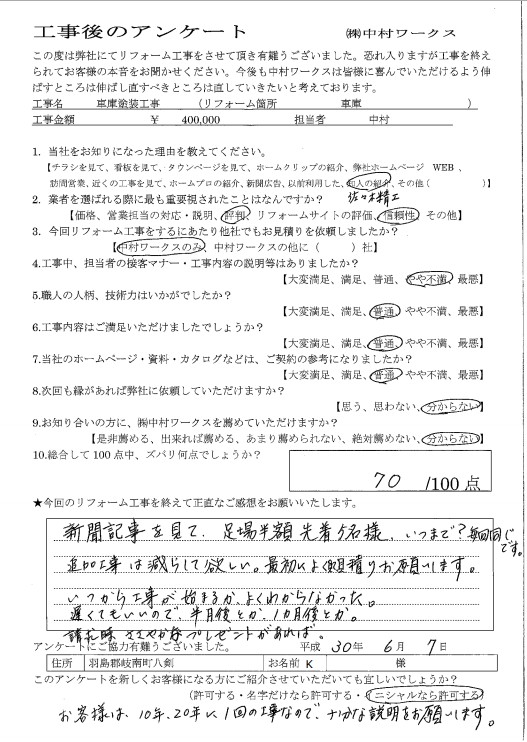 工事後のアンケート ㈱中村ワークス
この度は弊社にてリフォーム工事をさせて頂き有難うございました。恐れ入りますが工事を終え
られてお客様の本音をお聞かせください。今後も中村ワークスは皆様に喜んでいただけるよう伸
ばすところは伸ばし直すべきところは直していきたいと考えております。
工事名 車庫塗装工事 (リフォーム箇所 車庫 )
工事金額 ¥ 400,000 担当者 中村
1. 当社をお知りになった理由を教えてください。
【チラシを見て、看板を見て、タウンページを見て、ホームクリップの紹介、弊社ホームページ WEB 、
訪問営業、近くの工事を見て、ホームプロの紹介、新聞広告、以前利用した、知人の紹介、その他( )】
佐々木精工
2. 業者を選ばれる際に最も重要視されたことはなんですか?
【価格、営業担当の対応・説明、評判、リフォームサイトの評価、信頼性、その他】
3. 今回リフォーム工事をするにあたり他社でもお見積りを依頼しましたか?
【中村ワークスのみ、中村ワークスの他に( )社】
4.工事中、担当者の接客マナー・工事内容の説明等はありましたか?
【大変満足、満足、普通、やや不満、最悪】
5.職人の人柄、技術力はいかがでしたか?
【大変満足、満足、普通、やや不満、最悪】
6.工事内容はご満足いただけましたでしょうか?
【大変満足、満足、普通、やや不満、最悪】
7.当社のホームページ・資料・カタログなどは、ご契約の参考になりましたか?
【大変満足、満足、普通、やや不満、最悪】
8.次回も縁があれば弊社に依頼していただけますか?
【思う、思わない、分からない】
9.お知り合いの方に、㈱中村ワークスを薦めていただけますか?
【是非薦める、出来れば薦める、あまり薦められない、絶対薦めない、分からない】
10.総合して100点中、ズバリ何点でしょうか?
70 /100点
★今回のリフォーム工事を終えて正直なご感想をお願いいたします。
新聞記事を見て、足場半額先着5名様、いつまで?毎回同じです。
追加工事は減らして欲しい。最初によく見積りお願いします。
いつから工事が始まるか、よくわからなかった。
遅くてもいいので、半月後とか、1カ月後とか。
請求時ささやかなプレゼントがあれば。
アンケートにご協力有難うございました。 平成 30年 6月 7日
住所 羽島郡岐南町八剣 お名前 K 様
このアンケートを新しくお客様になる方にご紹介させていただいても宜しいでしょうか?
(許可する・名字だけなら許可する・イニシャルなら許可する)
お客様は、10年、20年に1回の工事なので、十分な説明をお願いします。